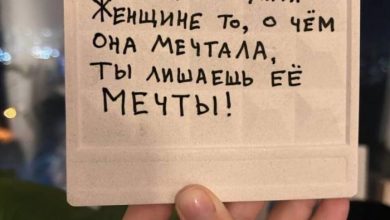 ЖЕНЩИНЕ ТО, О ЧЁМ
ОНА МЕЧТАЛА,
ТЫ ЛИШАЕШЬ ЕЁ
МЕЧТЫ!